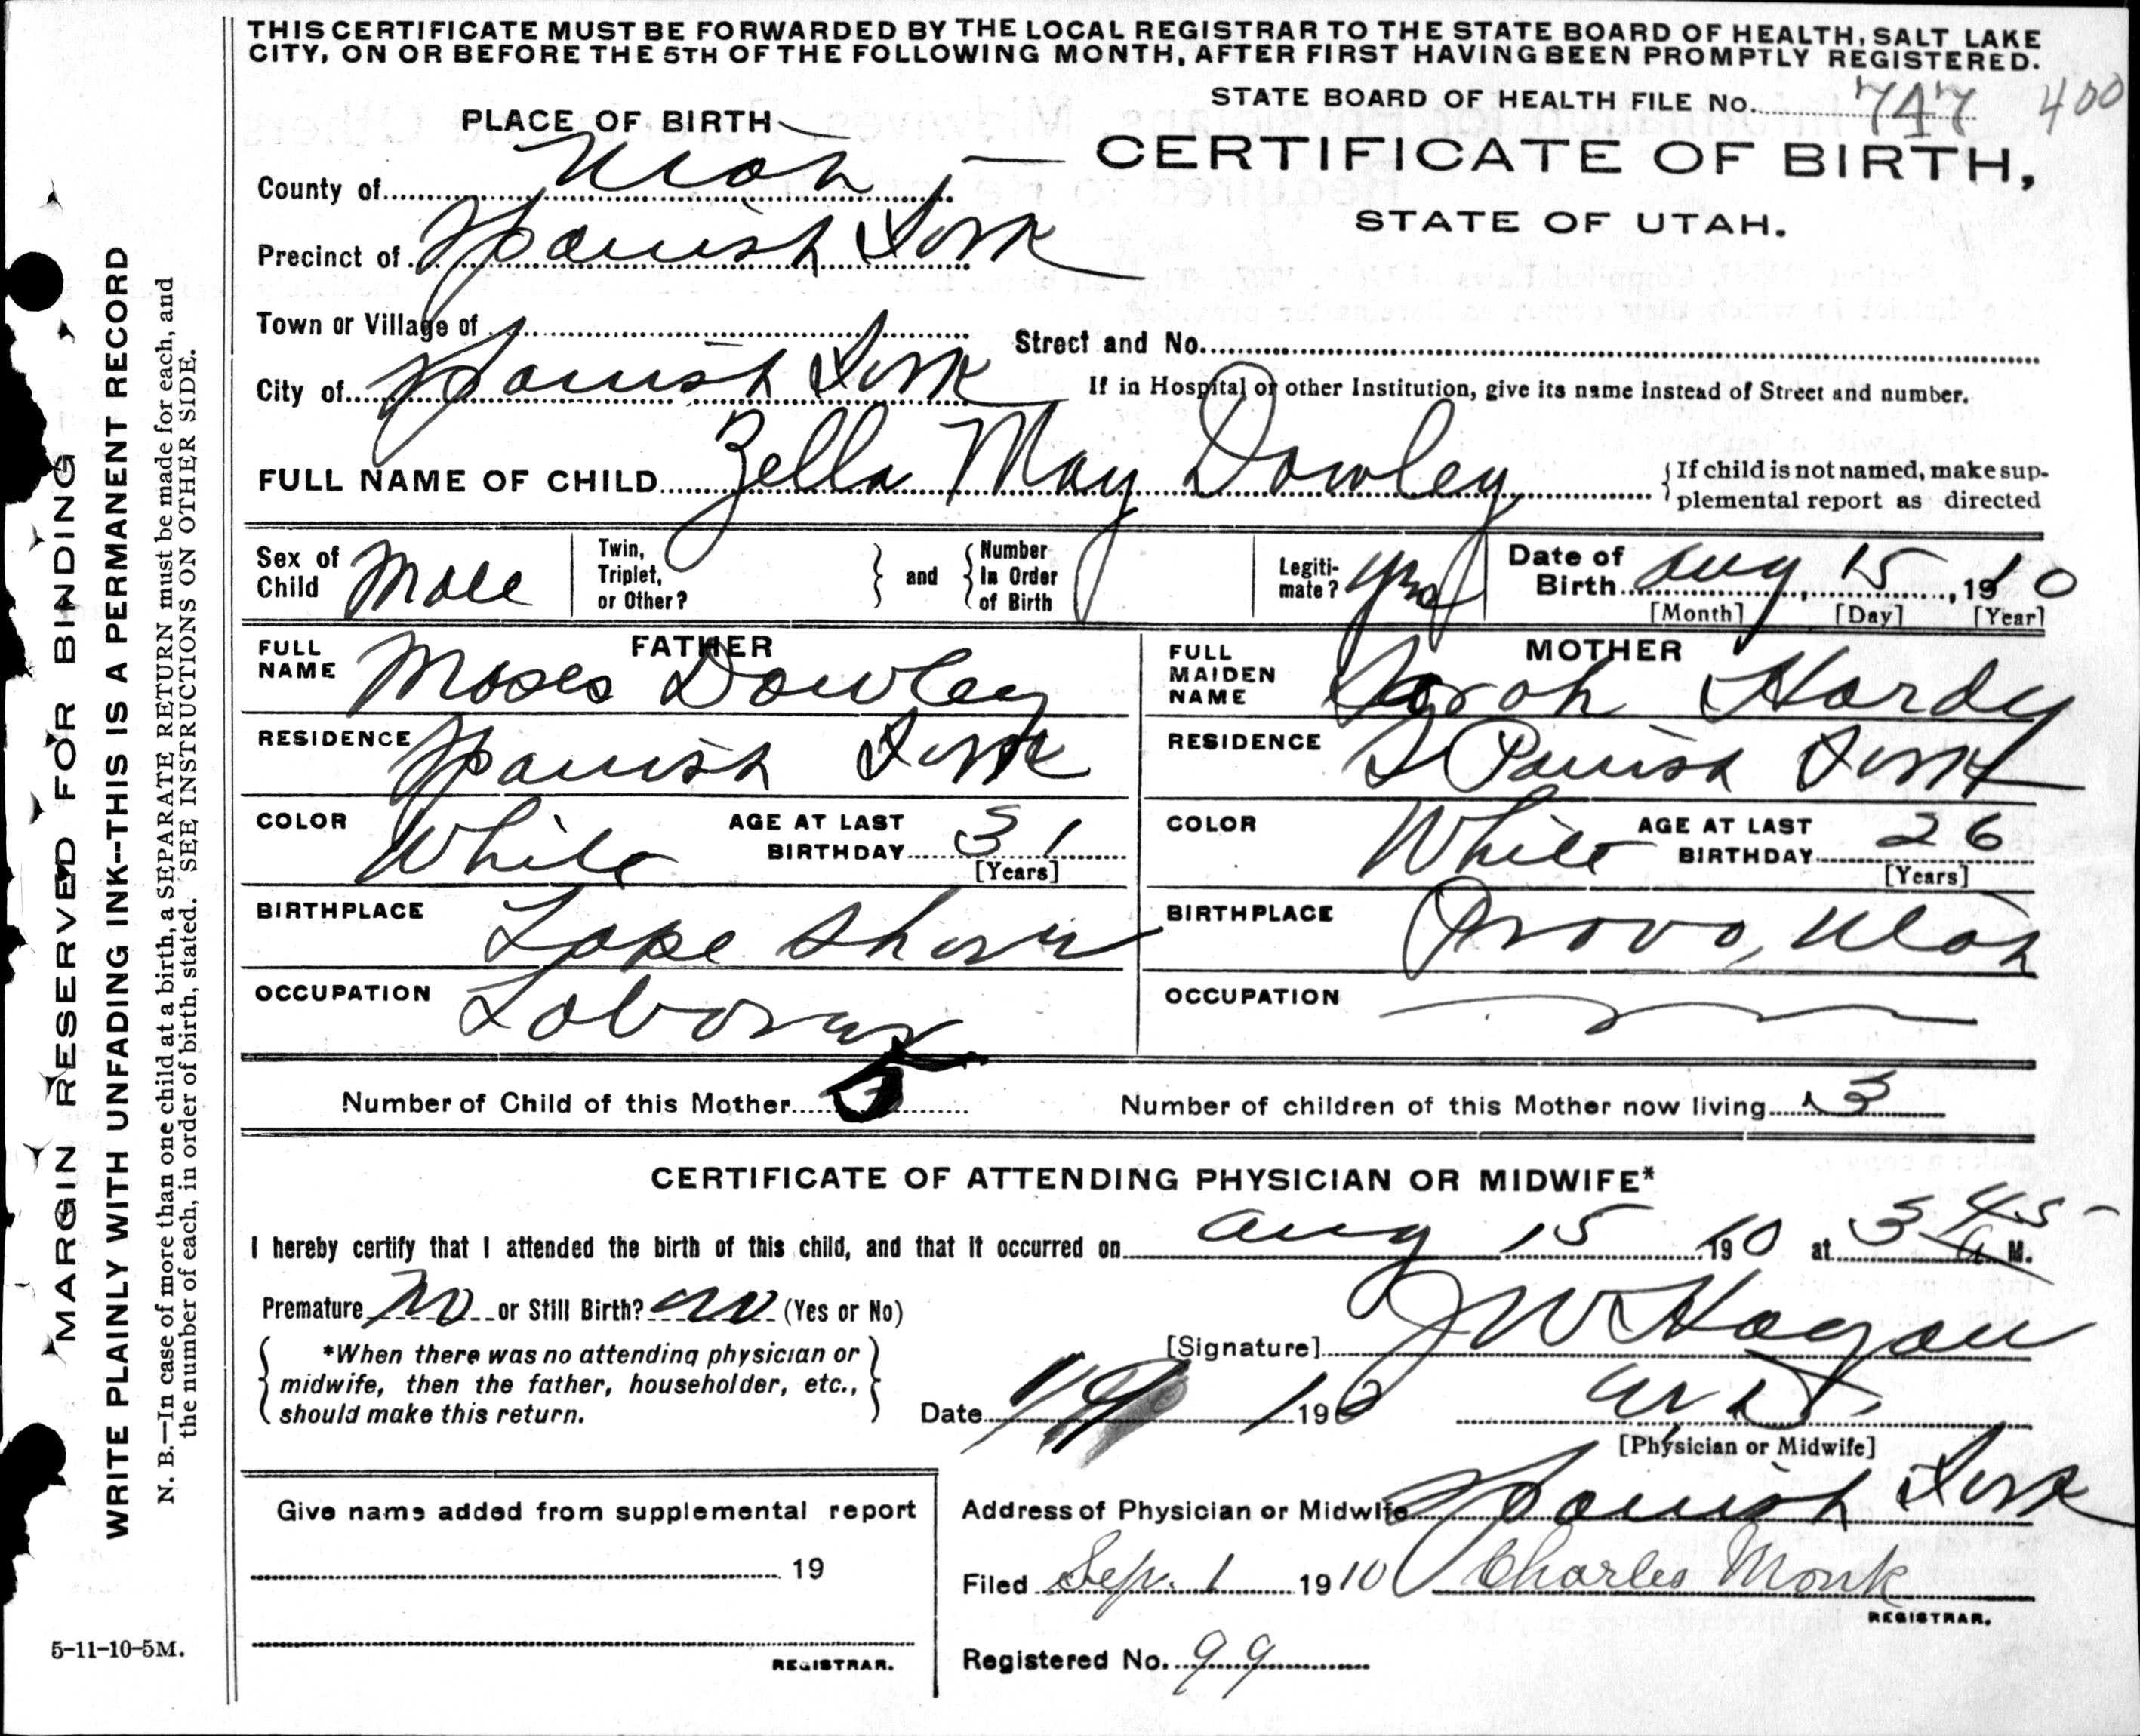 THIS CERTIFICATE MUST BE FORWARDED BY THE LOCAL REGISTRAR TO THE STATE BOARD OF HEALTH, SALT LAKE
CITY, ON OR BEFORE THE 5TH OF THE FOLLOWING MONTH, AFTER FIRST HAVING BEEN PROMPTLY REGISTERED.
STATE BOARD OF HEALTH FILE No. 747 400
PLACE OF BIRTH
CERTIFICATE OF BIRTH,
STATE OF UTAH.
County of Utah
Precinct of Spanish Fork
Town or Village of
Street and No.
City of Spanish Fork
If in Hospital or other Institution, give its name instead of Street and number.
FULL NAME OF CHILD Zella May Dowley
{If child is not named, make sup-
plemental report as directed
Sex of Child Male
Twin, Triplet, or Other?
} and {
Number In Order of Birth
Legiti-mate? yes
Date of Birth Aug 15, 1910
[Month] [Day] [Year]
FATHER
FULL NAME Moses Dowley
RESIDENCE Spanish Fork
COLOR White AGE AT LAST BIRTHDAY 31
[Years]
BIRTHPLACE Lake Shore
OCCUPATION Laborer
MOTHER
FULL MAIDEN NAME Sarah Hardy
RESIDENCE Spanish Fork
COLOR White AGE AT LAST BIRTHDAY 26
[Years]
BIRTHPLACE Provo, Utah
OCCUPATION
Number of Child of this Mother
Number of children of this Mother now living 3
CERTIFICATE OF ATTENDING PHYSICIAN OR MIDWIFE*
I hereby certify that I attended the birth of this child, and that it occurred on Aug 15 1910 at 3 45 a M.
Premature no or Still Birth? no (Yes or No)
{*When there was no attending physician or
midwife, then the father, householder, etc.,
should make this return.}
[Signature] J W Hagan
Date 191
[Physician or Midwife]
Give name added from supplemental report
19
REGISTRAR.
Address of Physician or Midwife Spanish Fork
Filed Sep. 1 1910 Charles Monk
REGISTRAR.
Registered No. 99
5-11-10-5M.
MARGIN RESERVED FOR BINDING
WRITE PLAINLY WITH UNFADING INK--THIS IS A PERMANENT RECORD
N. B.—In case of more than one child at a birth, a SEPARATE RETURN must be made for each, and
the number of each, in order of birth, stated. SEE INSTRUCTIONS ON OTHER SIDE.